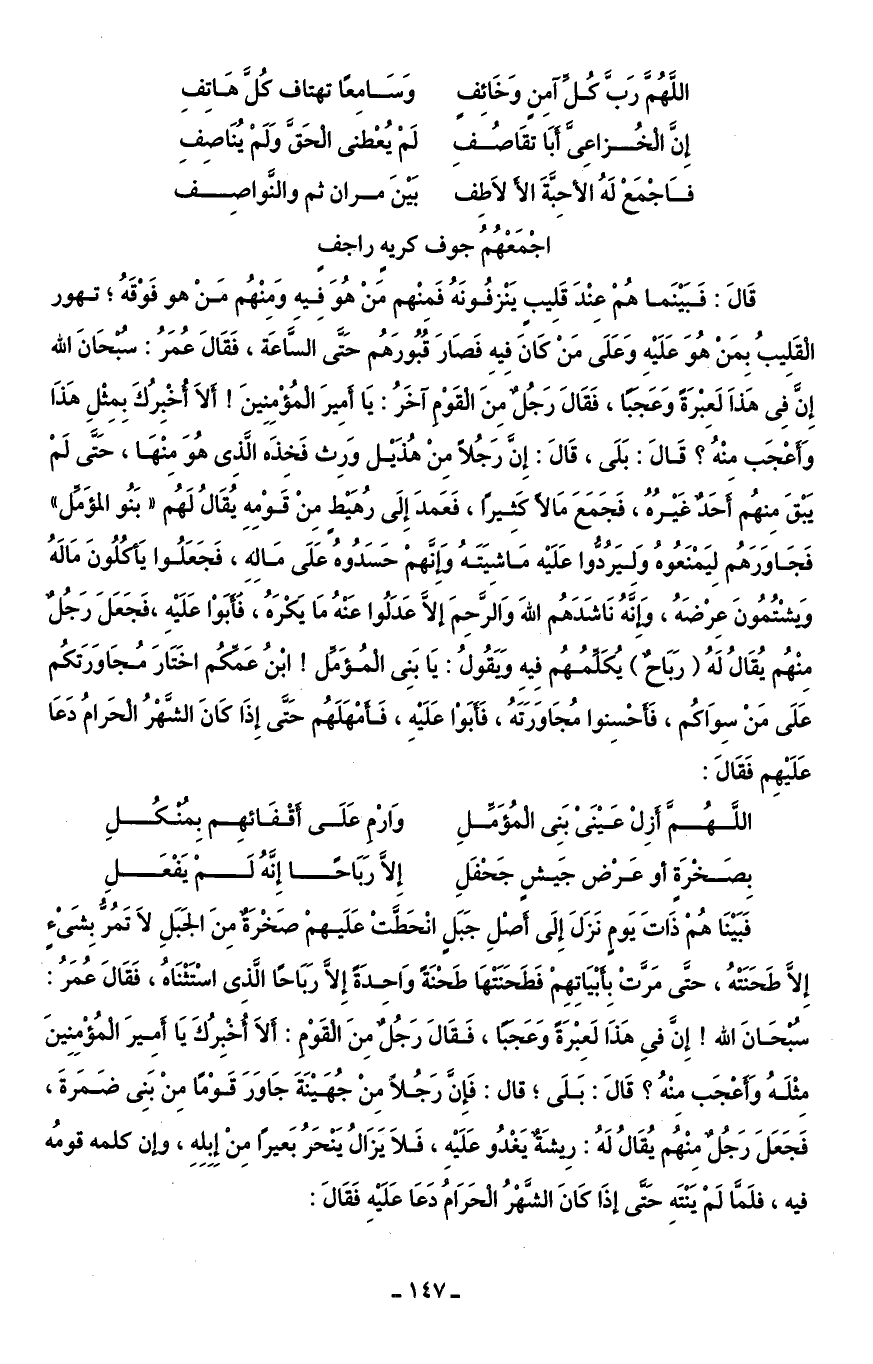 اللَّهُمَّ رَبَّ كُلِّ آمِنٍ وَخَائِفٍ وَسَامِعًا تهتاف كُلَّ هَاتِفِ
إِنَّ الْخُزاعِىَّ أَبَا تقَاصُفِ لَمْ يُعْطِنِى الْحَقَّ وَلَمْ يُنَاصِفِ
فَاجْمَعْ لَهُ الأحِبَّةَ الأَلاَطِفِ بَيْنَ مران ثم والنَّواصِفِ
اجْمَعْهُمُ جوف كريهِ راجفِ
قَالَ : فَبَيْنَما هُمْ عِنْدَ قَلِيبٍ يَنْزِفُونَهُ فَمِنْهم مَنْ هُوَ فِيهِ وَمِنْهُم مَنْ هو فَوْقَهُ ؛ تهور
القَلِيبُ بِمَنْ هُوَ عَلَيْهِ وَعَلَى مَنْ كَانَ فِيهِ فَصَارَ قُبُورَهُم حَتَّى السَّاعَةِ ، فَقَالَ عُمَرُ : سُبْحَانَ الله
إِنَّ فِى هَذَا لَعِبْرَةً وَعَجَبًا ، فَقَالَ رَجُلٌ مِنَ الْقَوْمِ آخَرُ : يَا أَمِيرَ الْمُؤْمِنِينَ ! أَلاَ أُخْبِرُكَ بِمِثْلِ هَذَا
وَأَعْجَب مِنْهُ ؟ قَالَ : بَلَى ، قَالَ : إِنَّ رَجُلاً مِنْ هُذَيْلٍ وَرِثَ فَخِذَه الَّذِى هُوَ مِنْهَا ، حَتَّى لَمْ
يَبْقَ مِنهم أَحَدٌ غَيْرُهُ ، فَجَمَعَ مَالاً كَثِيرًا ، فَعَمدَ إِلَى رُهَيْطٍ مِنْ قَوْمِهِ يُقَالُ لَهُم « بَنُو المؤَمِّل»
فَجَاوَرَهُم لِيَمْنَعُوهُ وَلِيَرُدُّوا عَلَيْهِ مَاشِيَتَهُ وَإِنَّهمْ حَسَدُوهُ عَلَى مَالِهِ ، فَجَعَلُوا يَأكُلُونَ مَالَهُ
وَيَشْتُمُونَ عِرْضَهُ ، وَإِنَّهُ نَاشَدَهُم اللهَ وَالرَّحِمَ إِلاَّ عَدَلُوا عَنْهُ مَا يَكْرَهُ ، فَأَبَوْا عَلَيْهِ ،فَجَعَلَ رَجُلٌ
مِنْهُم يُقَالُ لَهُ ( رَبَاحٌ ) يُكَلِّمُهُم فِيهِ وَيَقُولُ : يَا بَنِى الْمُؤَمِّلِ ! ابْنُ عَمِّكُم اخْتَارَ مُجَاوَرَتَكُم
عَلَى مَنْ سِوَاكُم ، فَأَحْسِنوا مُجَاوَرَتَهُ ، فَأَبَوْا عَلَيْهِ ، فَأَمْهَلَهُم حَتَّى إِذَا كَانَ الشَّهْرُ الْحَرامُ دَعَا
عَلَيْهِم فَقَالَ :
اللَّهُمَّ أَزِلْ عَيْنَىْ بَنِى الْمُؤَمِّلِ وَارْمِ عَلَى أَقْفَائِهِم بِمُنْكُلِ
بِصَخْرَةٍ أو عَرْضِ جَيشٍ جَحْفَلِ إِلاَّ رَبَاحًا إِنَّهُ لَمْ يَفْعَلِ
فَبَيْنَا هُمْ ذَاتَ يَوم نَزَلَ إِلَى أَصْلِ جبَلٍ انْحَطَّتْ عَلَيهِمْ صَخْرَةٌ مِنَ الجَبَلِ لاَ تَمُرُّ بِشَىْءٍ
إِلاَّ طَحَنَتْهُ ، حتَّى مَرَّتْ بِأَبْيَاتِهِمْ فَطَحَنَتْهَا طَحْنَةً وَاحِدَةً إِلاَّ رَبَاحًا الَّذِى اسْتَثْنَاهُ ، فَقَالَ عُمَرُ :
سُبْحَانَ الله ! إِنَّ فِى هَذَا لَعِبْرَةً وَعَجَبًا ، فَقَالَ رَجُلٌ مِنَ الْقَوْمِ : أَلاَ أُخْبِرُكَ يَا أَمِيرَ الْمُؤْمِنِينَ
مِثْلَهُ وَأَعْجَب مِنْهُ ؟ قَالَ : بَلَى ؛ قال : فَإِنَّ رَجُلاً مِنْ جُهَيْنَةَ جَاوَرَ قَوْمًا مِنْ بَنِى ضَمَرَةَ ،
فَجَعَلَ رَجُلٌ مِنْهُم يُقَالُ لَهُ : رِيشَةٌ يَغْدُو عَلَيْهِ ، فَلاَ يَزَالُ يَنْحَرُ بَعِيرًا مِنْ إِبِلِهِ ، وإن كلمه قومُه
فيه ، فلَمَّا لَمْ يَنْتَهِ حَتَّى إِذَا كَانَ الشَّهْرُ الْحَرَامُ دَعَا عَلَيْهِ فَقَالَ :
ـ ١٤٧ ـ